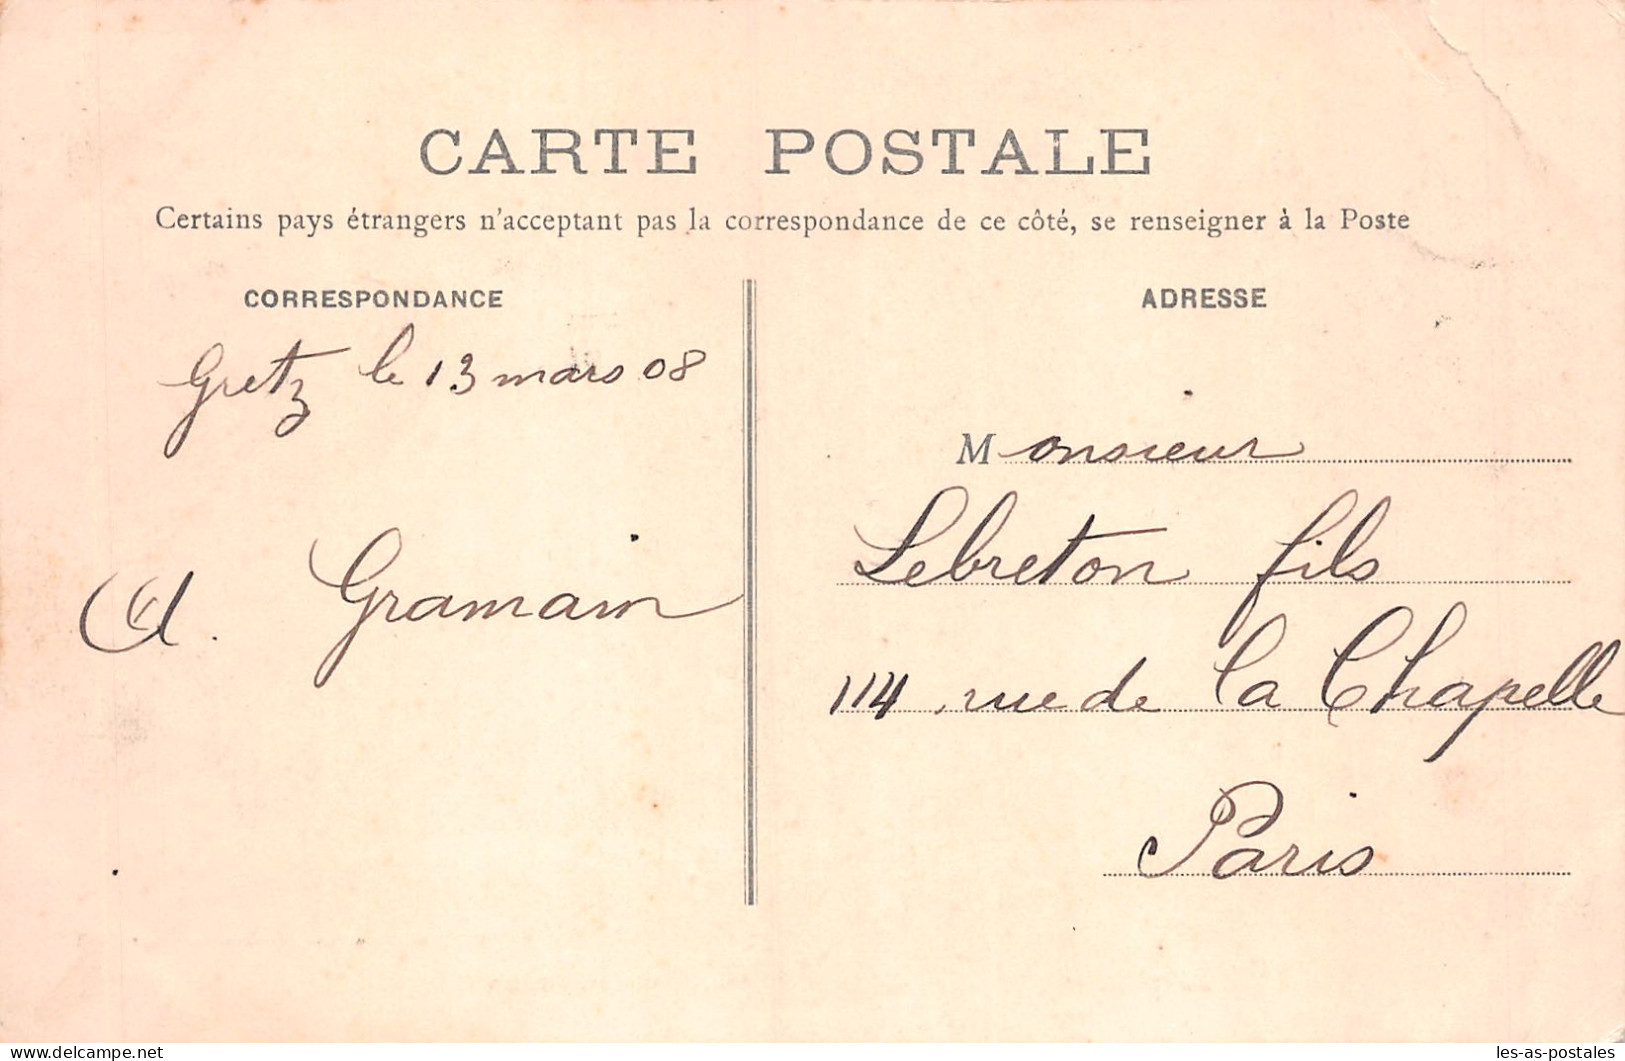 CARTE POSTALE
Certains pays étrangers n'acceptant pas la correspondance de ce côté, se renseigner à la Poste
CORRESPONDANCE
Gretz le 13 mars 08
A. Gramain
ADRESSE
Monsieur
Lebreton fils
114 rue de la Chapelle
Paris
delcampe.net
les-as-postales